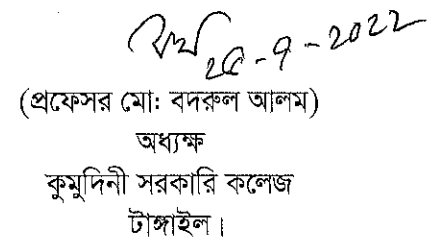 ২৫-৭-২০২২
(প্রফেসর মো: বদরুল আলম)
অধ্যক্ষ
কুমুদিনী সরকারি কলেজ
টাঙ্গাইল।